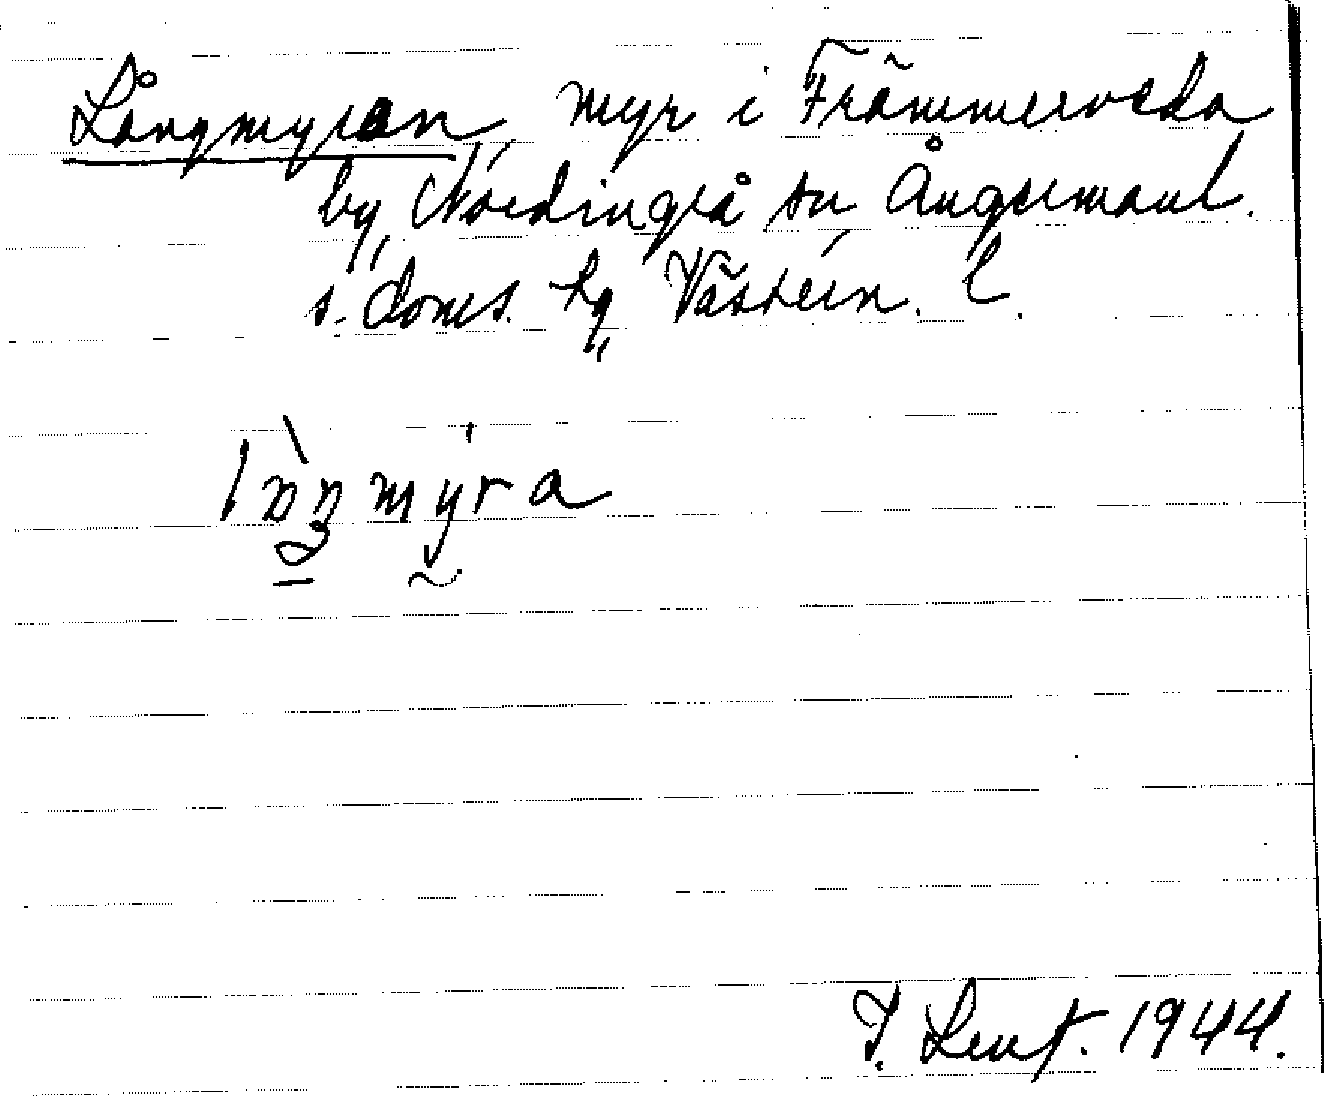 Långmyran, myr i Främmerveda
by, Nordingrå sn Ångermanl.
s. doms. hg Västern. l.
lɒŋmyra
J. Lenf. 1944.